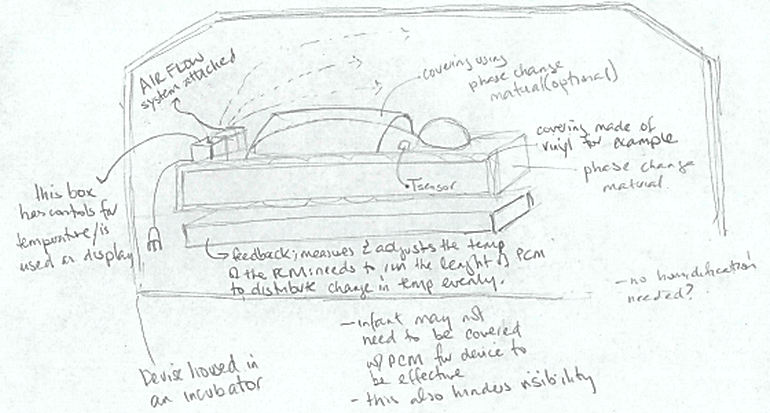 AIR FLOW
system attached
covering using
phase change
matual (optional)
covering made of
vinyl for example
phase change
matual
Tsensor
this box
has controls for
temperature/is
used as display
feedback; measures & adjusts the temp
of the PCM; needs to run the lenght of PCM
to distribute change in temp evenly.
- no humidification
needed?
- infant may not
need to be covered
w/ PCM for device to
be effective
- this also hinders visibility
Device housed in
an incubator